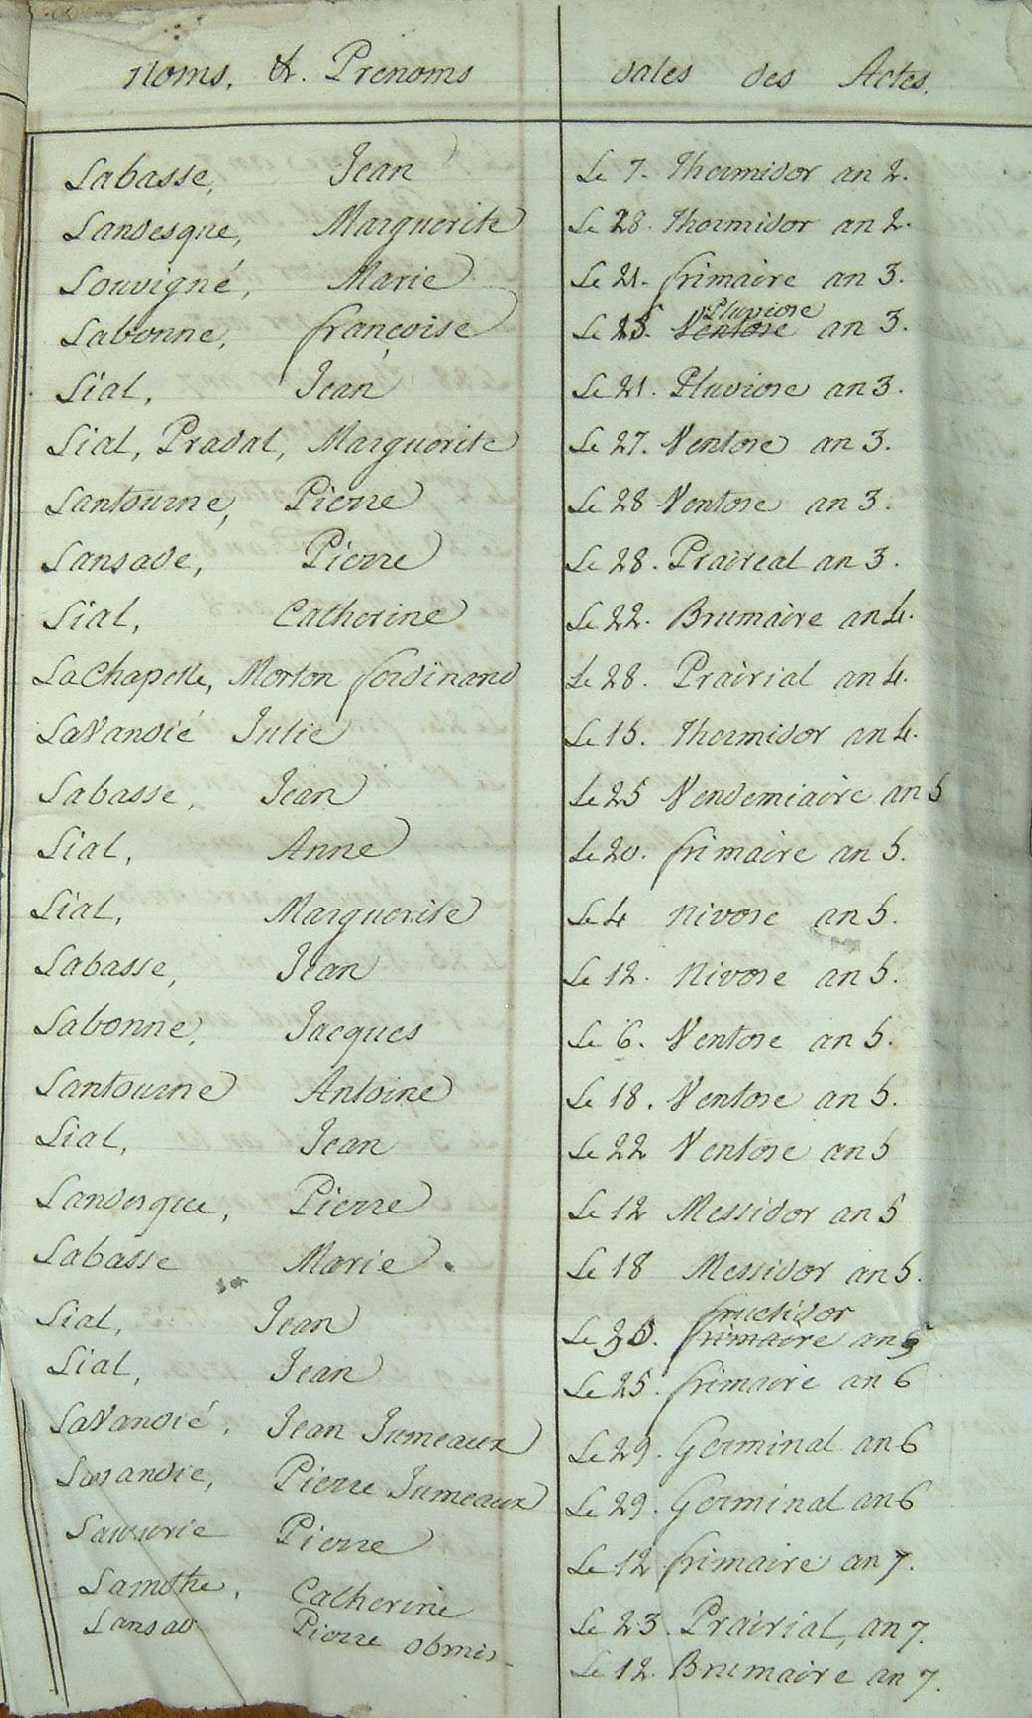 noms. &. Prenoms dates des Actes.
Labasse, Jean Le 7. Thermidor an 2.
Landesque, Marguerite Le 28. Thermidor an 2.
Louvigné, Marie Le 21. frimaire an 3.
Labonne, francoise Le 25. Ventose Pluviose an 3.
Lial, Jean Le 21. Pluviose an 3.
Lial, Pradal, Marguerite Le 27. Ventose an 3.
Lantourne, Pierre Le 28 Ventose an 3.
Lansade, Pierre Le 28. Praireal an 3.
Lial, Catherine Le 22. Brumaire an 4.
LaChapelle, Morton ferdinand Le 28. Prairial an 4.
LaVandié Julie Le 15. Thermidor an 4.
Labasse, Jean Le 25 Vendemiaire an 5
Lial, Anne Le 20. frimaire an 5.
Lial, Marguerite Le 4 nivose an 5.
Labasse, Jean Le 12. nivose an 5.
Labonne, Jacques Le 6. Ventose an 5.
Lantourne Antoine Le 18. Ventose an 5.
Lial, Jean Le 22 Ventose an 5
Landesque, Pierre Le 12 Messidor an 5
Labasse Marie. Le 18 Messidor an 5.
Lial, Jean Le frimaire fructidor an 5
Lial, Jean Le 25. frimaire an 6
LaVandié, Jean Jumeaux Le 29. Germinal an 6
Lavandie, Pierre Jumeaux Le 29. Germinal an 6
Pierre Le 12 frimaire an 7.
Lamothe, Catherine Le 23. Prairial, an 7.
Lansad Pierre obmis Le 12 Brumaire an 7.